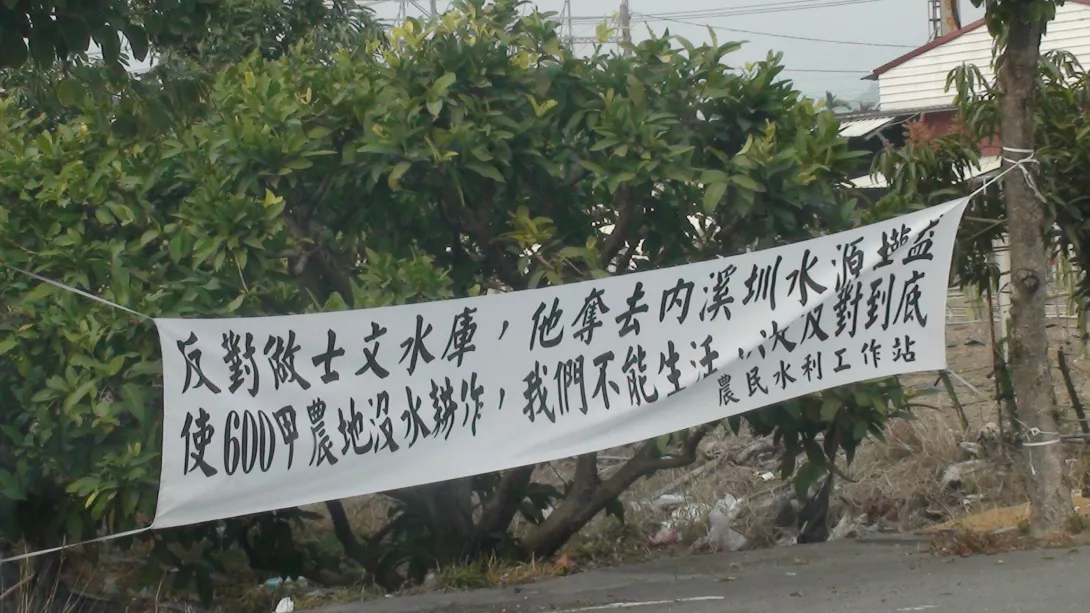 反對做士文水庫，他奪去內溪圳水源權益
使600甲農地沒水耕作，我們不能生活，決反對到底
農民水利工作站